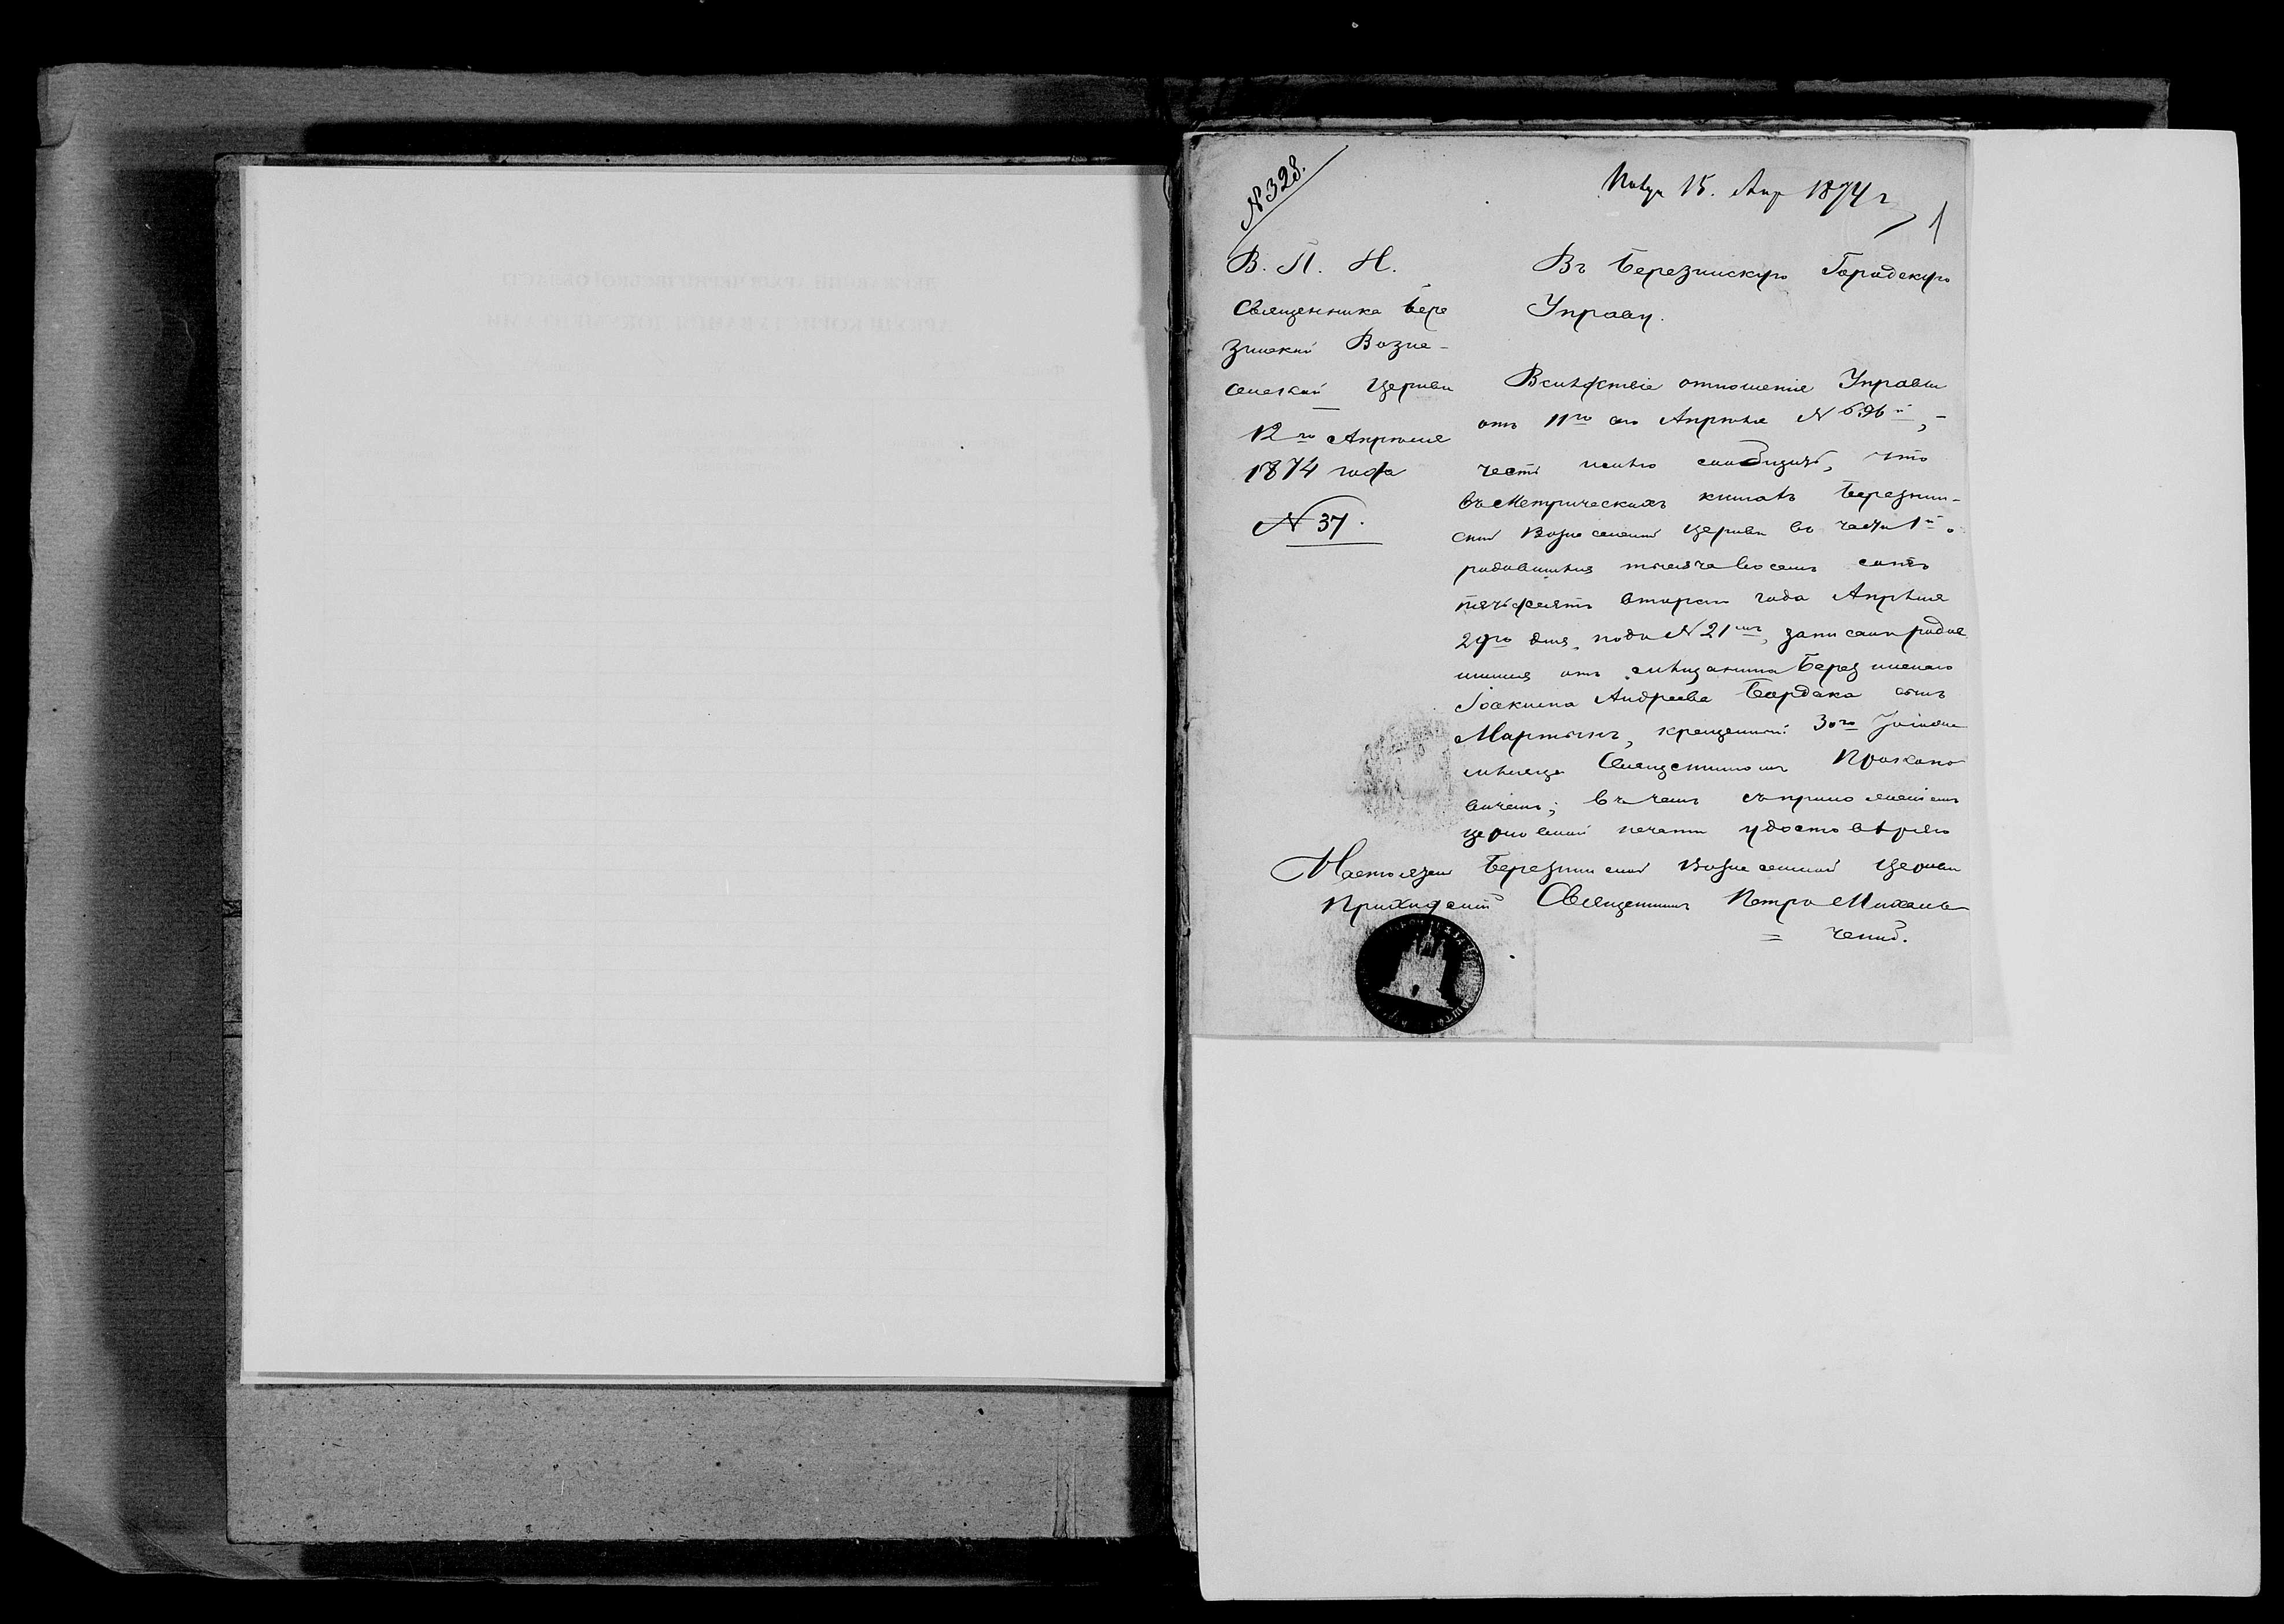 № 328.
Получ 15. Апр 1874 г
1
В. П. И.
Священника Бере
зинской Возне-
сенской Церкви
12го Апреля
1874 года
№ 37.
Въ Березинскую Городскую
Управу.
Вслѣдствіе отношенія Управы
от 11го сего Апрѣля № 696й, -
честь имѣю сообщить, что
въ Метрическихъ книгахъ Березин-
ской Вознесенской церкви въ части 1й о
родившихся тысяча восемь сотъ
пятьдесятъ втораго года Апрѣля
29го дня, подъ № 21мъ, записанъ родив
шимся отъ мѣщанина Березинскаго
Іоакима Андреева Бордака сынъ
Мартынъ, крещенный 30го
мѣсяца Священникомъ Проколо
вичемъ; въ чемъ съ приложеніемъ
церковной печати удостовѣряю
Настоящей Березинской Вознесенской Церкви
Приходскій Священникъ Петръ Михаль
= ческій.